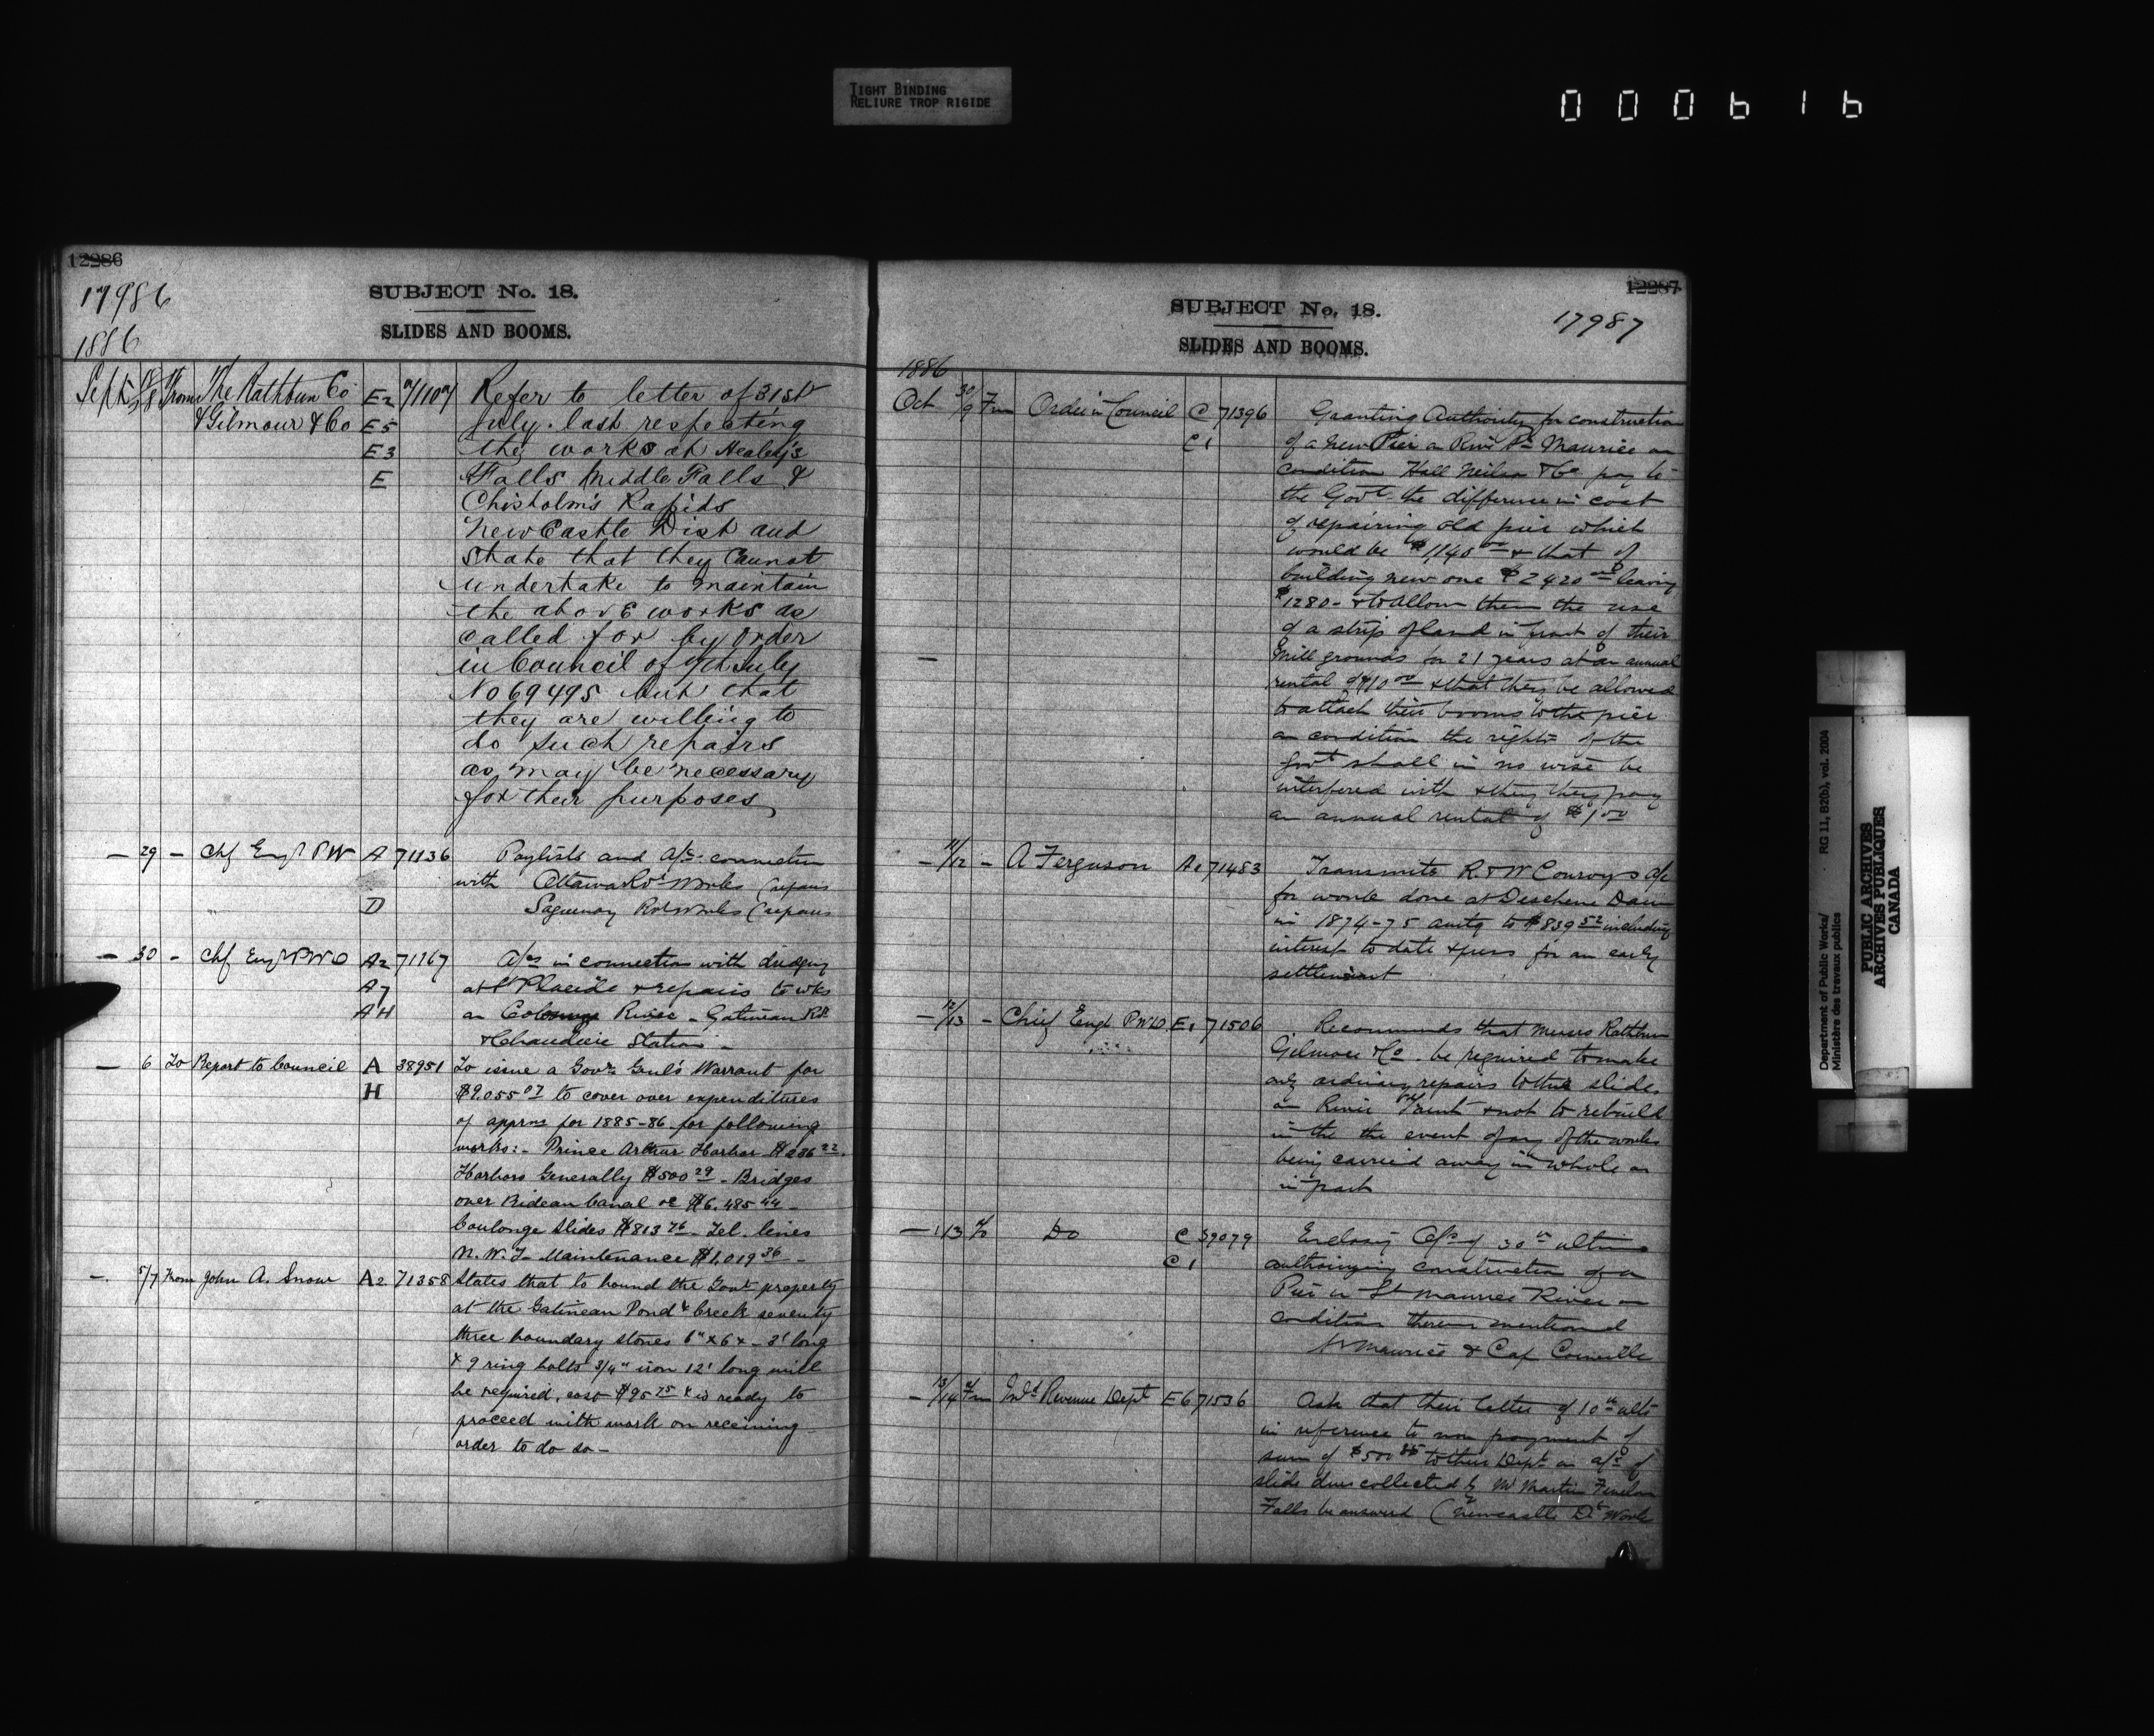 TIGHT BINDING
RELIURE TROP RIGIDE
000616
12286
17986
1886
SUBJECT No. 18.
SLIDES AND BOOMS.
Sept From The Rathbun Co E2 71107 Refer to letter of 31st
& Gilmour & Co E5 July last respecting
E3 the works at Healey's
E Falls Middle Falls &
Chisholm's Rapids
NewCastle Dist and
State that they Cannot
undertake to maintain
the above works as
called for by Order
in Council of 7th July
No 69495 but that
they are willing to
do such repairs
as may be necessary
for their purposes
— 29 — Chf Engr PW A 71136 Paylists and a/cs connection
with Ottawa Rr Works (repairs
D Saguenay Rr Works (repairs
— 30 — Chf Engr PWD A2 71167 A/cs in connection with dredging
A7 at St Placide & repairs to wks
AH on Coulonge River - Gatineau Rr
& Chaudiere Station —
— 6 To Report to Council A 38951 To issue a Govr Genl's Warrant for
H $9.055 07 to cover over expenditures
of apprns for 1885-86 for following
works:- Prince Arthur Harbor $236 22.
Harbors Generally $500 29 - Bridges
over Rideau Canal &c $6.485 44 -
Coulonge Slides $813 76 - Tel. lines
N.W.T- Maintenance $1,019 36 -
—. 5/7 From John A. Snow A2 71358 States that to bound the Govt property
at the Gatineau Pond & Creek seventy
three boundary stones 6" x 6 x - 3' long
& 9 ring bolts 3/4" iron 12' long will
be required, cost $95 75 & is ready to
proceed with work on receiving
order to do so -
12287
17987
SUBJECT No. 18.
SLIDES AND BOOMS.
1886
Oct 30/9 Frm Order in Council C 71396 Granting Authority for construction
C1 of a new Pier on River St Maurice on
condition Hall Neilson & Co pay to
the Govt the difference in cost
of repairing old pier which
would be $1140 00 & that of
building new one $2420 00 leaving
$1280- & to allow them the use
of a strip of land in front of their
— Mill grounds for 21 years at an annual
rental of $10 00 & that they be allowed
to attach their booms to the pier
on condition the rights of the
Govt shall in no wise be
interfered with & they pay
an annual rental of $1 00
— 11/12 — A Ferguson A1 71483 Transmits R & W Conroy's a/c
for work done at Deschene Dam
in 1874-75 amtg to $839 52 including
interest to date & press for an early
settlement
— 12/13 — Chief Engr PWD. E1 71506 Recommends that Messrs Rathbun
Gilmour & Co. be required to make
only ordinary repairs to the slides
on River Trent & not to rebuild
in the the event of any of the works
being carried away in whole or
in part
— 13 To Do C 39079 Enclosing O/C of 30th ultimo
C1 authorizing construction of a
Pier in St Maurice River on
conditions therein mentioned
St Maurice & Cap
— 13/14 Frm Inld Revenue Dept E6 71536 Ask that their letter of 10th ulto
in reference to non payment of
sum of $500 to their Dept on a/c of
slide dues collected by Mr Martin Fenelon
Falls be answered (Newcastle Dt Works
Department of Public Works/ RG 11, B2(b), vol. 2004
Ministère des travaux publics
PUBLIC ARCHIVES
ARCHIVES PUBLIQUES
CANADA